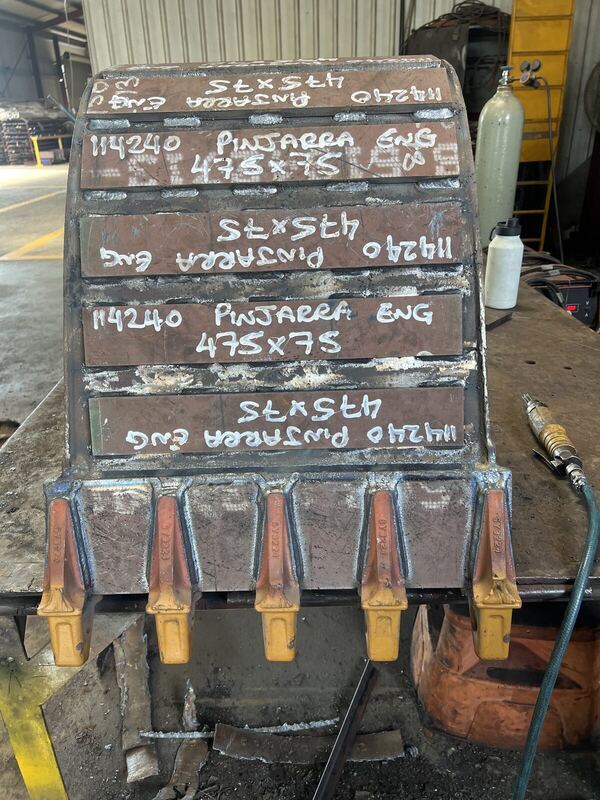 475x75
114240 PINJARRA ENG
114240 PINJARRA ENG
475x75 8
475x75
114240 PINJARRA ENG
114240 PINJARRA ENG
475x75
475x75
114240 PINJARRA ENG